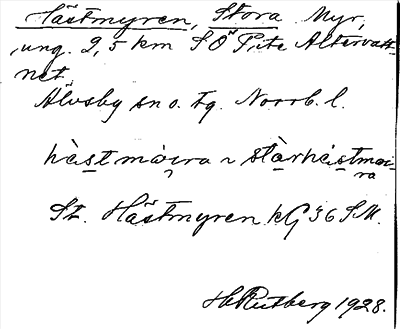 Hästmyren, Stora Myr,
ung. 2,5 km SÖ Pite Altervatt-
net.
Älvsby sn o. tg. Norrb. l.
hàstmòira ~ stàrhàstmoi-
ra
St. Hästmyren kG 36 S.M.
H Rutberg 1928.